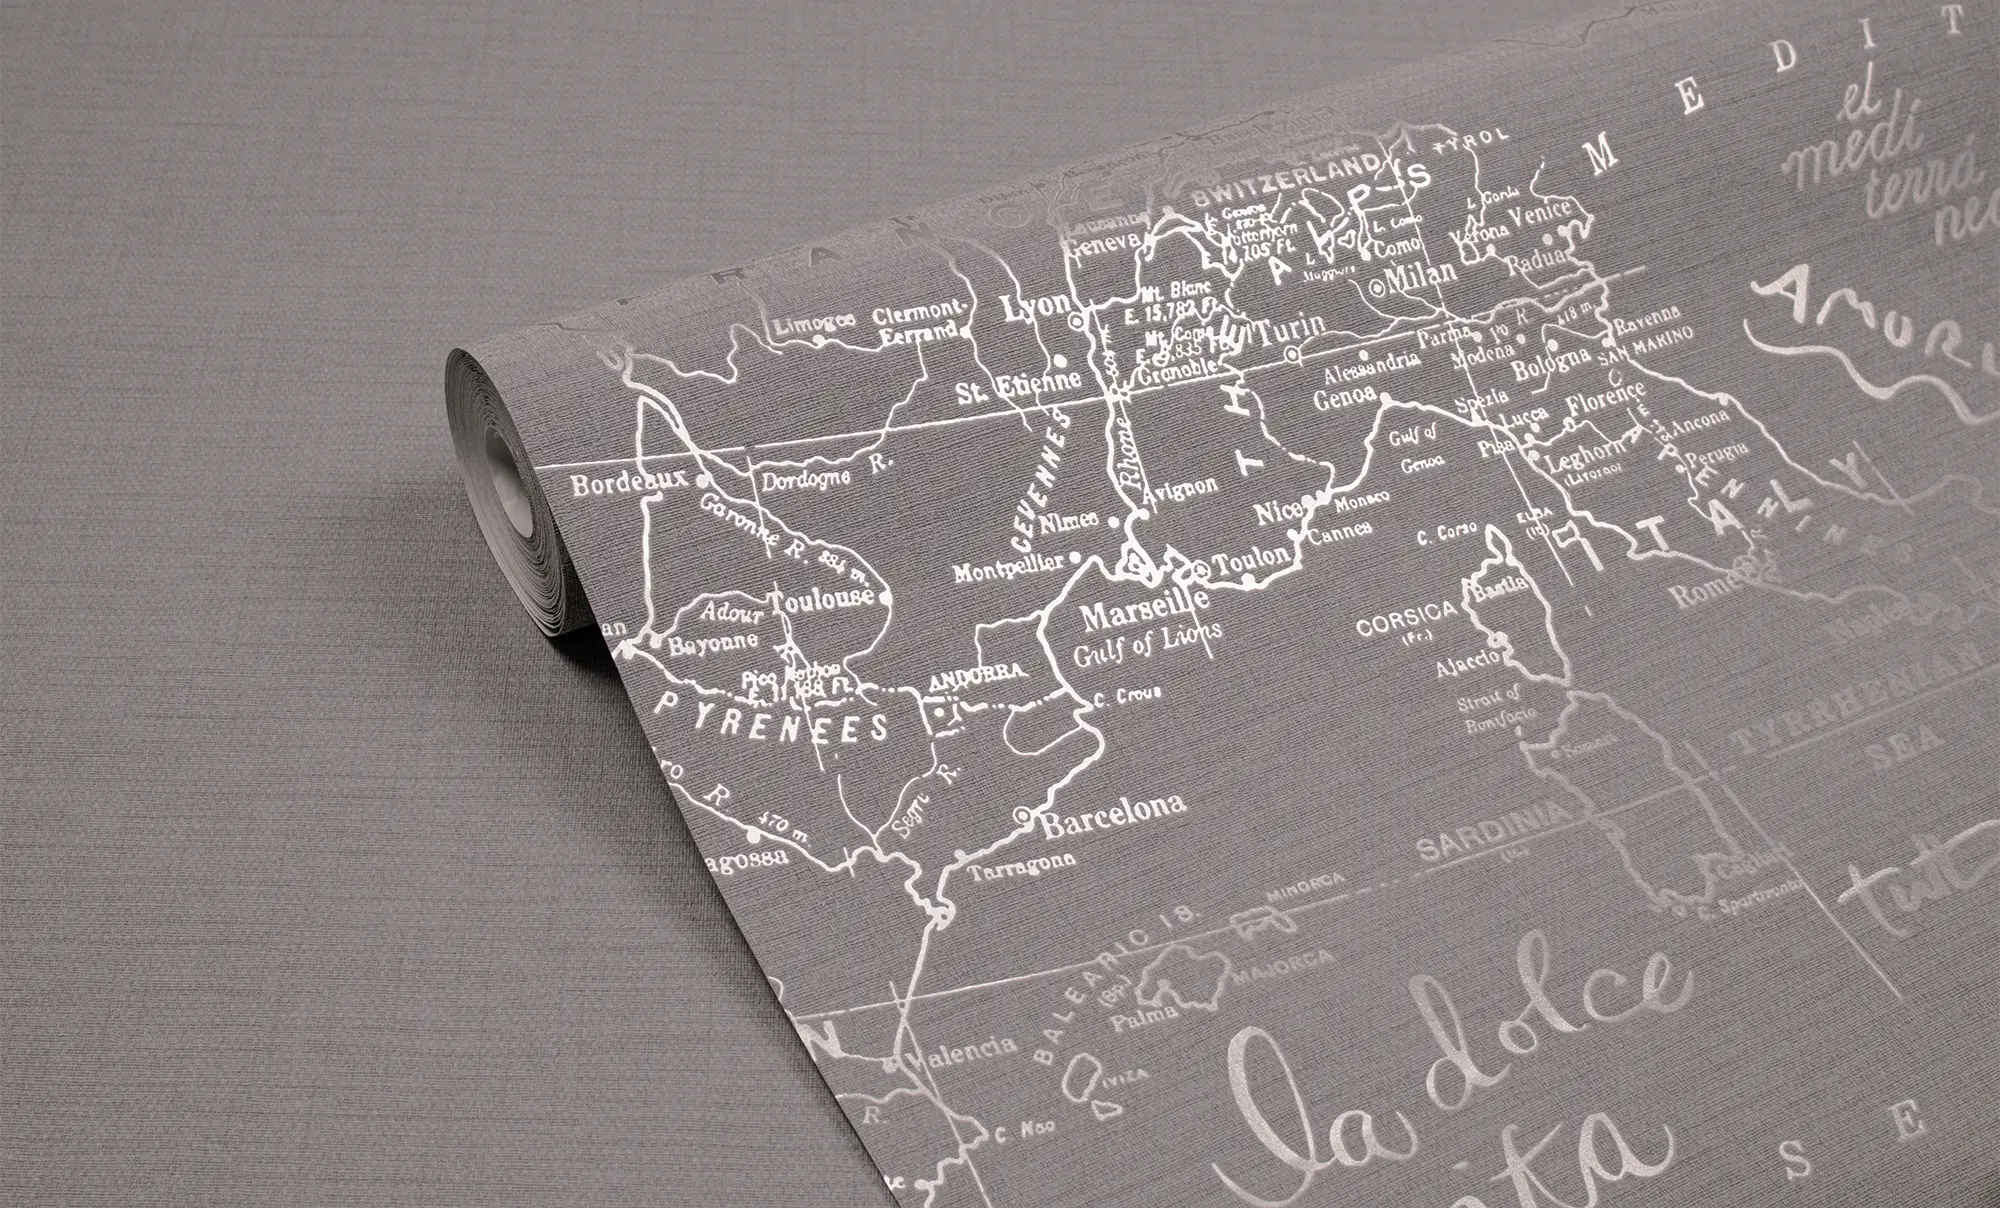 M E D I T
el
medi
terrá
neo
TYROL
SWITZERLAND
ALPS
Lausanne
Geneva
L. Como
Como
L. Garda
Verona
Venice
Padua
Milan
Limoges
Clermont-
Ferrand
Lyon
Mt. Blanc
E. 15,782 Ft.
Turin
Parma
Po R
418 m.
Ravenna
Modena
Bologna
SAN MARINO
AMOR
St. Etienne
Grenoble
Alessandria
Genoa
Spezia
Lucca
Florence
Ancona
Gulf of
Genoa
Pisa
Leghorn
(Livorno)
Perugia
CEVENNES
Rhone R.
Bordeaux
Dordogne R.
Avignon
Nice
Monaco
Garonne R. 884 m.
Nimes
Cannes
C. Corso
ELBA
(It.)
ITALY
Montpellier
Toulon
Bastia
Rome
Adour
Toulouse
Marseille
CORSICA
(Fr.)
an
Bayonne
Gulf of Lions
Ajaccio
ANDORRA
C. Creus
Strait of
Bonifacio
PYRENEES
TYRRHENIAN
SEA
ro R. 470 m.
Segre R.
Barcelona
agossa
Tarragona
SARDINIA
(It.)
Cagliari
C. Spartivento
tutt
MINORCA
BALEARIC IS.
(Sp.)
MAJORCA
Palma
la dolce
N
Valencia
IVIZA
R.
C. Nao
ita
S E